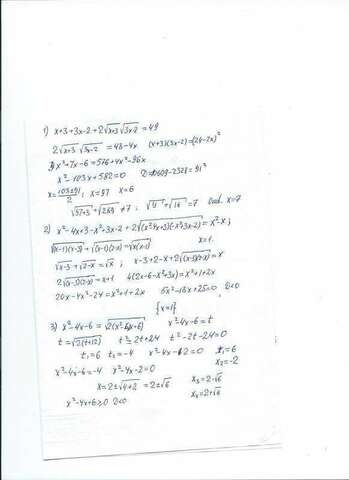 1) x+3+3x-2+2√x+3 √3x-2 = 49
2√x+3 √3x-2 = 48-4x (x+3)(3x-2)=(24-2x)²
3x²+7x-6=576+4x²-96x
x²-103x+582=0 D=10609-2328=91²
x=(103±91)/2; x=97 x=6
√97+3 + √289 ≠ 7; √9 + √16 = 7
2) x²-4x+3-x²+3x-2+2√(x²-4x+3)(-x²+3x-2) = x²-x;
√(x-1)(x-3) + √(x-1)(2-x) = √x(x-1) x=1.
√x-3 + √2-x = √x; x-3+2-x+2√(x-3)(2-x) = x
2√(x-3)(2-x) = x+1 4(2x-6-x²+3x)=x²+1+2x
20x-4x²-24=x²+1+2x 5x²-18x+25=0 D<0
{x=1}
3) x²-4x-6=√2(x²-4x+6) x²-4x-6=t
t=√2(t+12) t²=2t+24 t²-2t-24=0
t₁=6 t₂=-4 x²-4x-12=0 x₁=6
x₂=-2
x²-4x-6=-4 x²-4x-2=0
x=2±√4+2=2±√6 x₃=2-√6
x₄=2+√6
x²-4x+6≥0 D<0